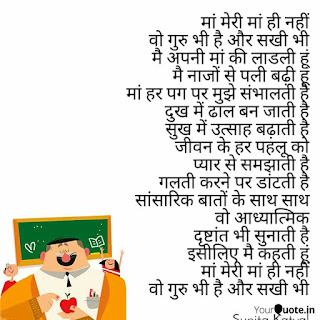 मां मेरी मां ही नहीं
वो गुरु भी है और सखी भी
मै अपनी मां की लाडली हूं
मै नाजों से पली बढ़ी हूं
मां हर पग पर मुझे संभालती है
दुख में ढाल बन जाती है
सुख में उत्साह बढ़ाती है
जीवन के हर पहलू को
प्यार से समझाती है
गलती करने पर डांटती है
सांसारिक बातों के साथ साथ
वो आध्यात्मिक
दृष्टांत भी सुनाती है
इसीलिए मै कहती हूं
मां मेरी मां ही नहीं
वो गुरु भी है और सखी भी
YourQuote.in
Sunita Katyal